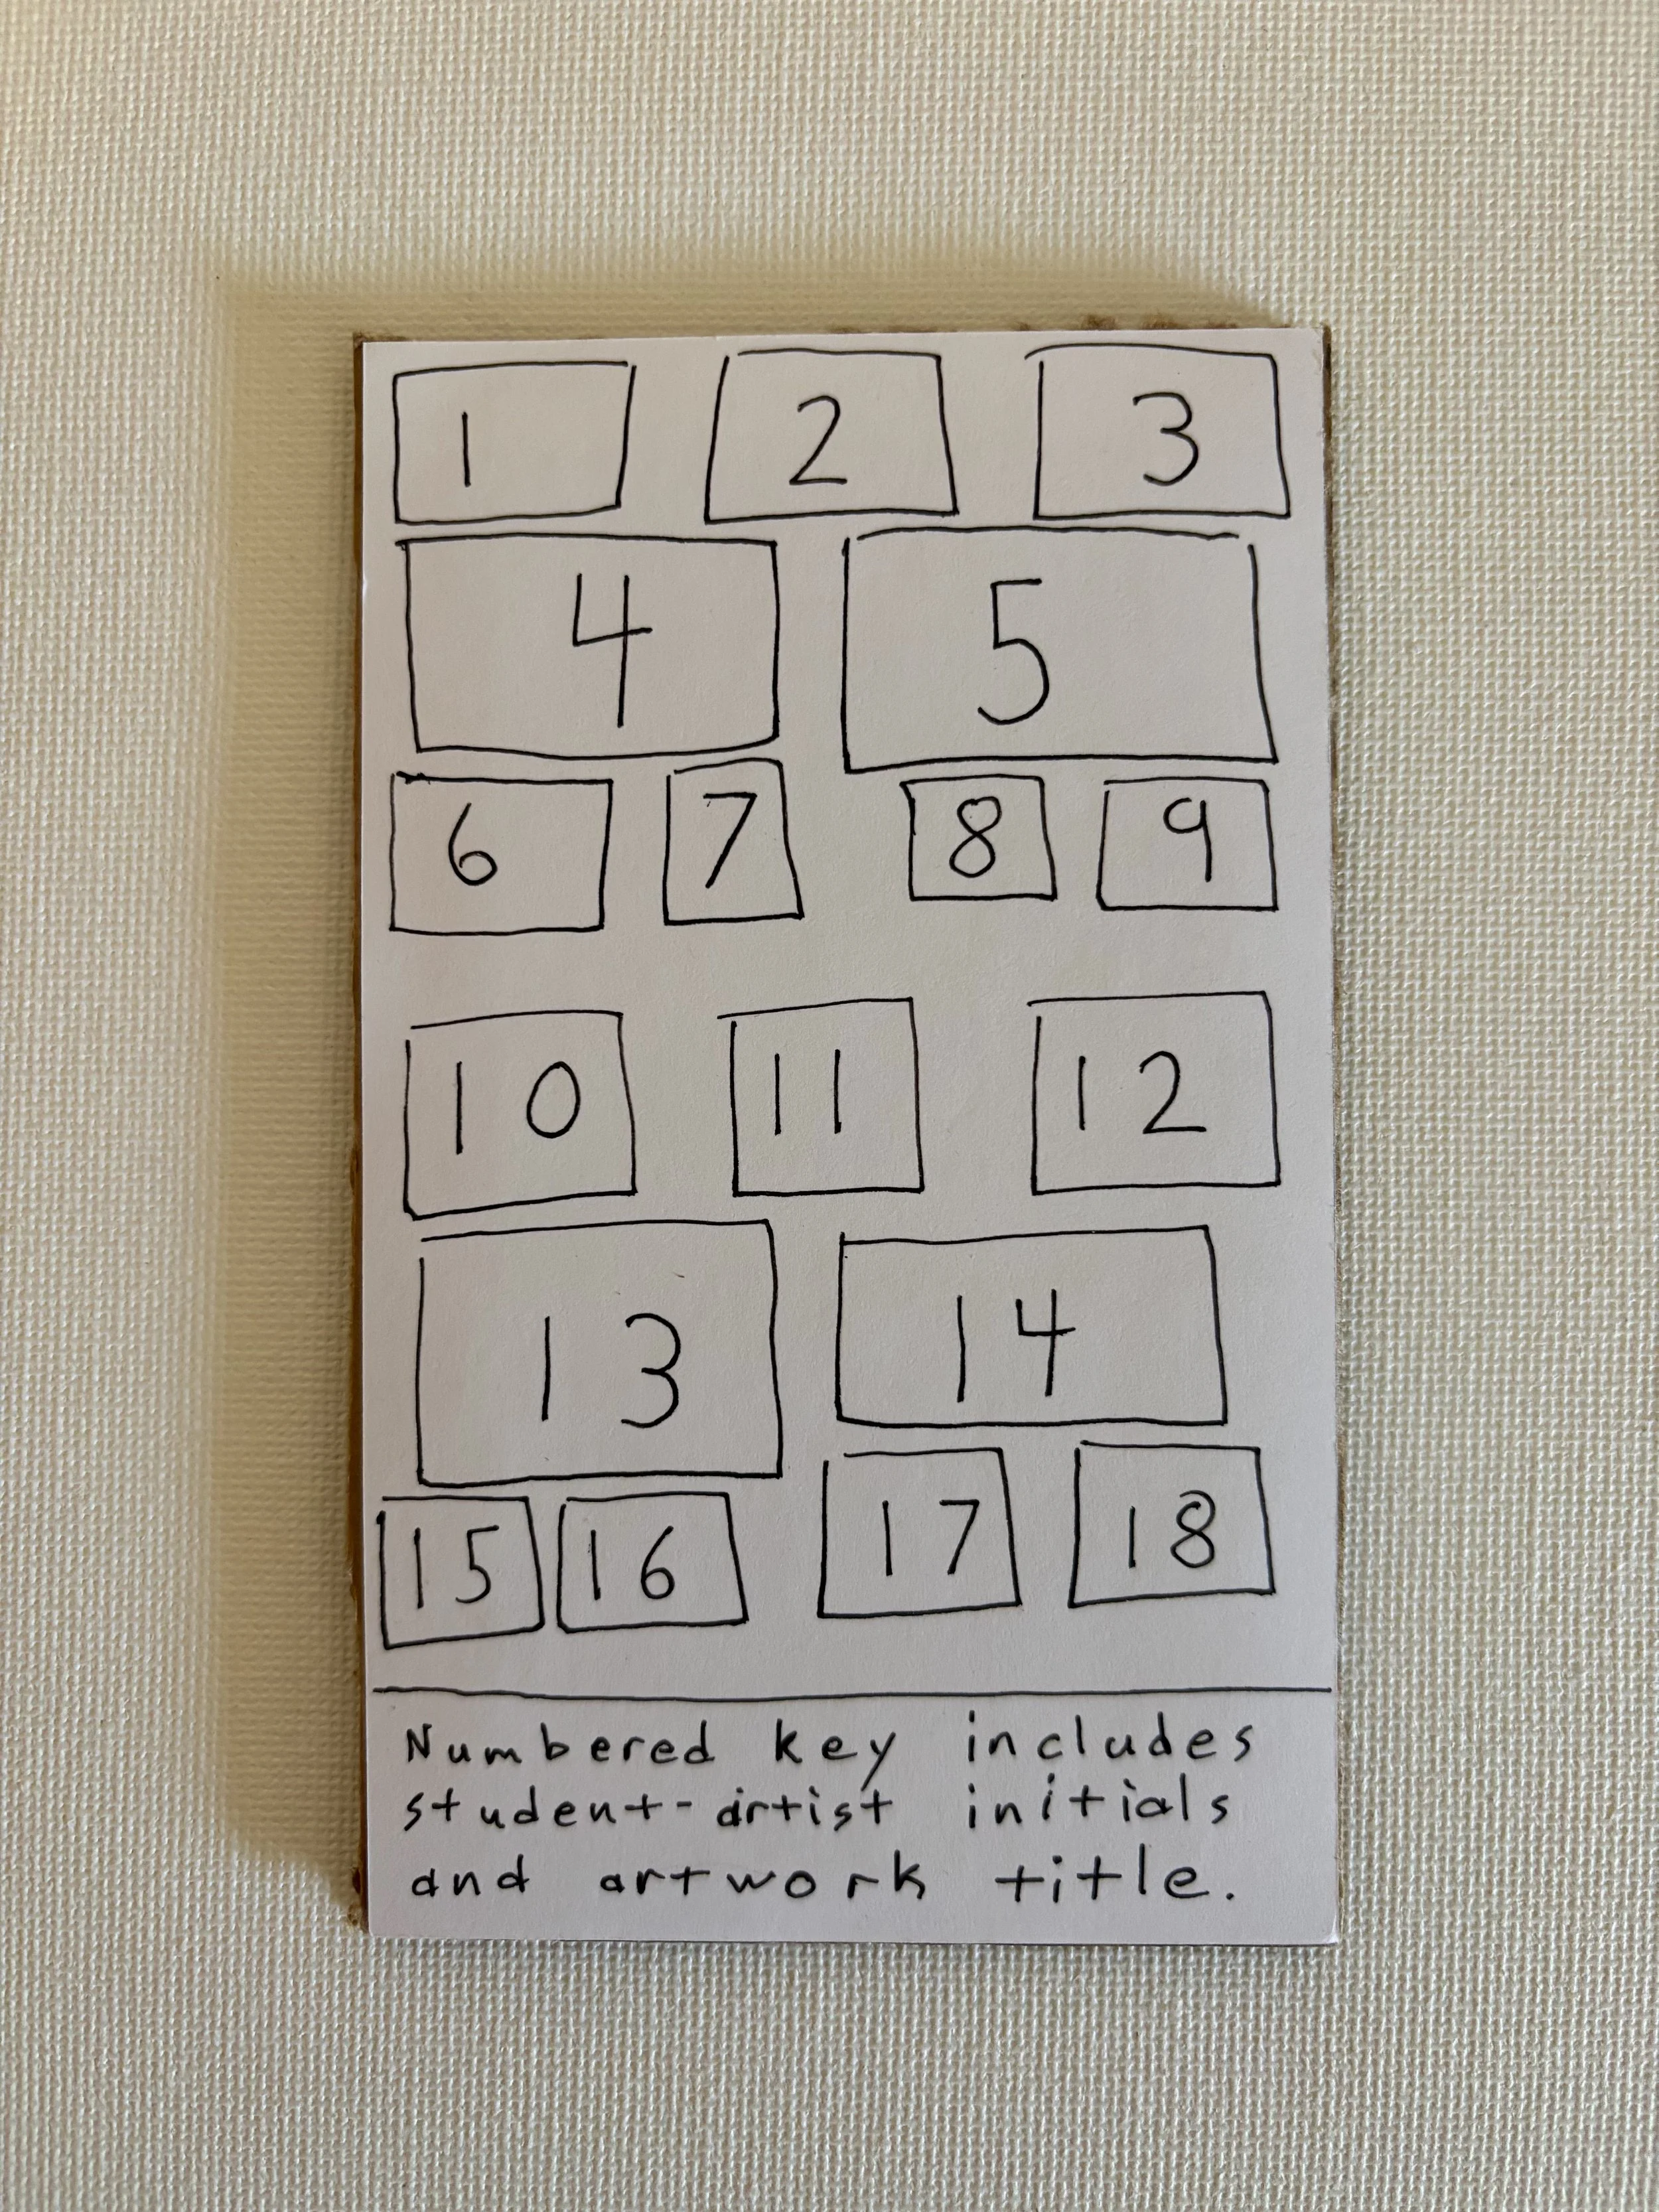 1 2 3
4 5
6 7 8 9
10 11 12
13 14
15 16 17 18
Numbered key includes
student-artist initials
and artwork title.